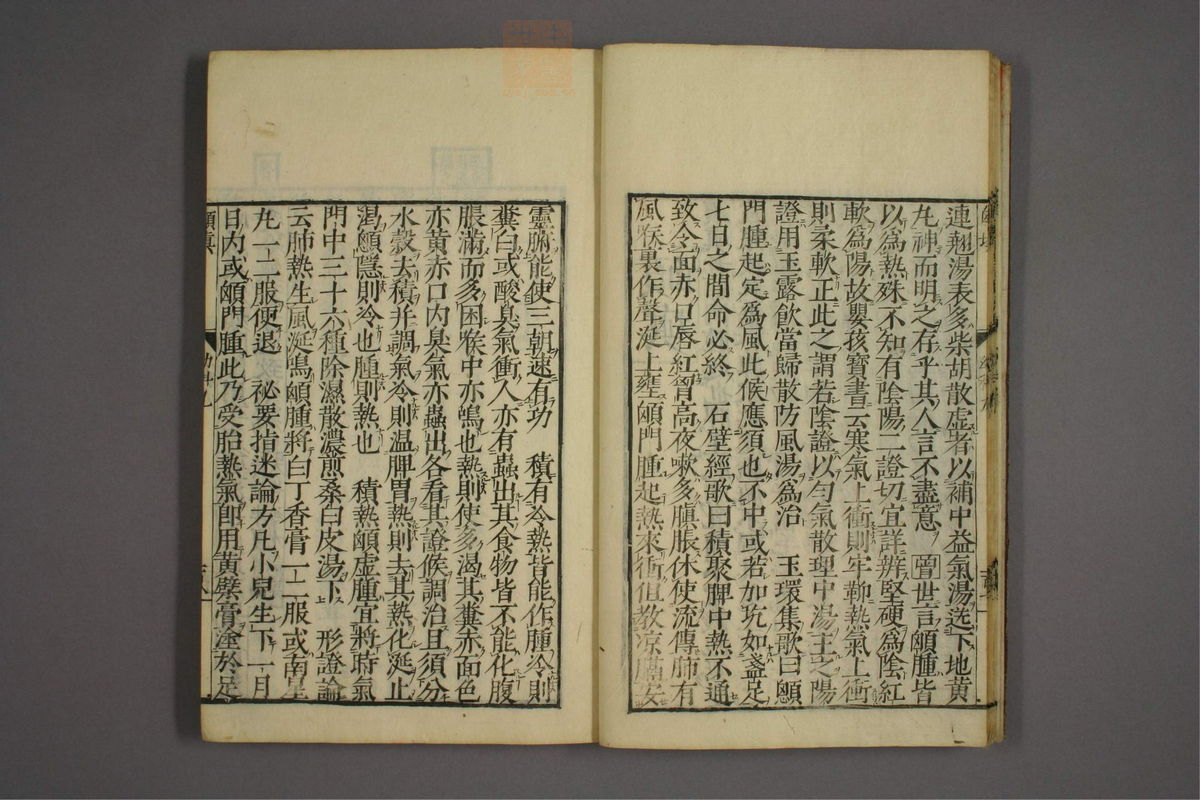 連翹湯表多柴胡散虛者以補中益氣湯送下地黃
丸神而明之存乎其人言不盡意　圕世言顖腫皆
以爲熱殊不知有陰陽二證切宜詳辨堅硬爲陰紅
軟爲陽故嬰孩寶書云寒氣上衝則牢靭熱氣上衝
則柔軟正此之謂若陰證以勻氣散理中湯主之陽
證用玉露飲當歸散防風湯爲治　玉環集歌曰顖
門腫起定爲風此候應須也不中或若如坑如盞足
七日之間命必終　石壁經歌曰積聚脾中熱不通
致令面赤口唇紅胷高夜嗽多臚脹休使流傳肺有
風喉裏作聲涎上壅顖門腫起熱來衝但教凉膈安
靈腑能使三朝速有功　積有冷熱皆能作腫冷則
糞白或酸臭氣衝人亦有蟲出其食物皆不能化腹
脹滿而多困喉中亦鳴也熱則使多渴其糞赤面色
亦黃赤口內臭氣亦蟲出各看其證候調治且須分
水穀去積并調氣冷則温脾胃熱則去其熱化涎止
渴顖隱則冷也腫則熱也　積熱顖虛腫宜將時氣
門中三十六種除濕散濃煎桑白皮湯下　形證論
云肺熱生風涎鳴顖腫將白丁香膏一二服或南星
丸一二服便退　祕要指迷論方凡小兒生下一月
日內或顖門腫此乃受胎熱氣卽用黃蘗膏塗於足